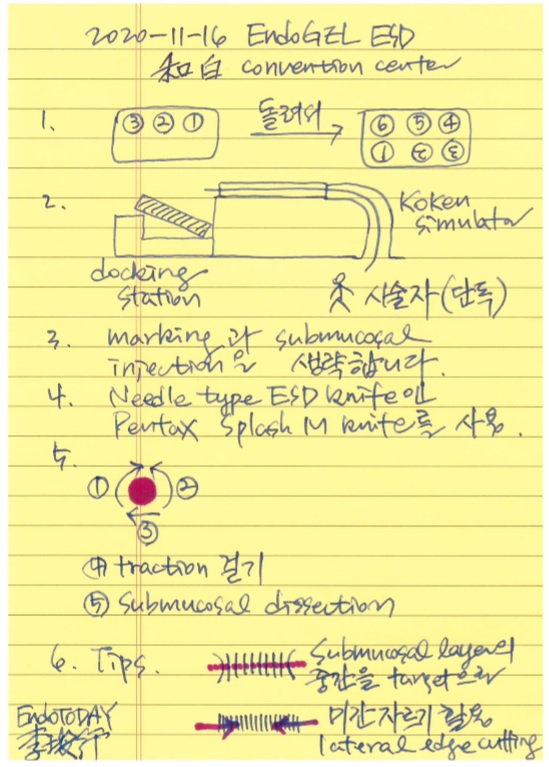 2020-11-16 EndoGEL ESD
和白 convention center
1. ③ ② ① 돌려서 ⑥ ⑤ ④
① ② ③
2.
Koken
simulator
docking
station
시술자(단독)
3. marking 과 submucosal
injection을 생략합니다.
4. Needle type ESD knife인
Pentax Splash M knife를 사용.
5.
① ②
③
④ traction 걸기
⑤ submucosal dissection
6. Tips. Submucosal layer의
중간을 target으로
EndoTODAY 미간자르기 활용
李 lateral edge cutting